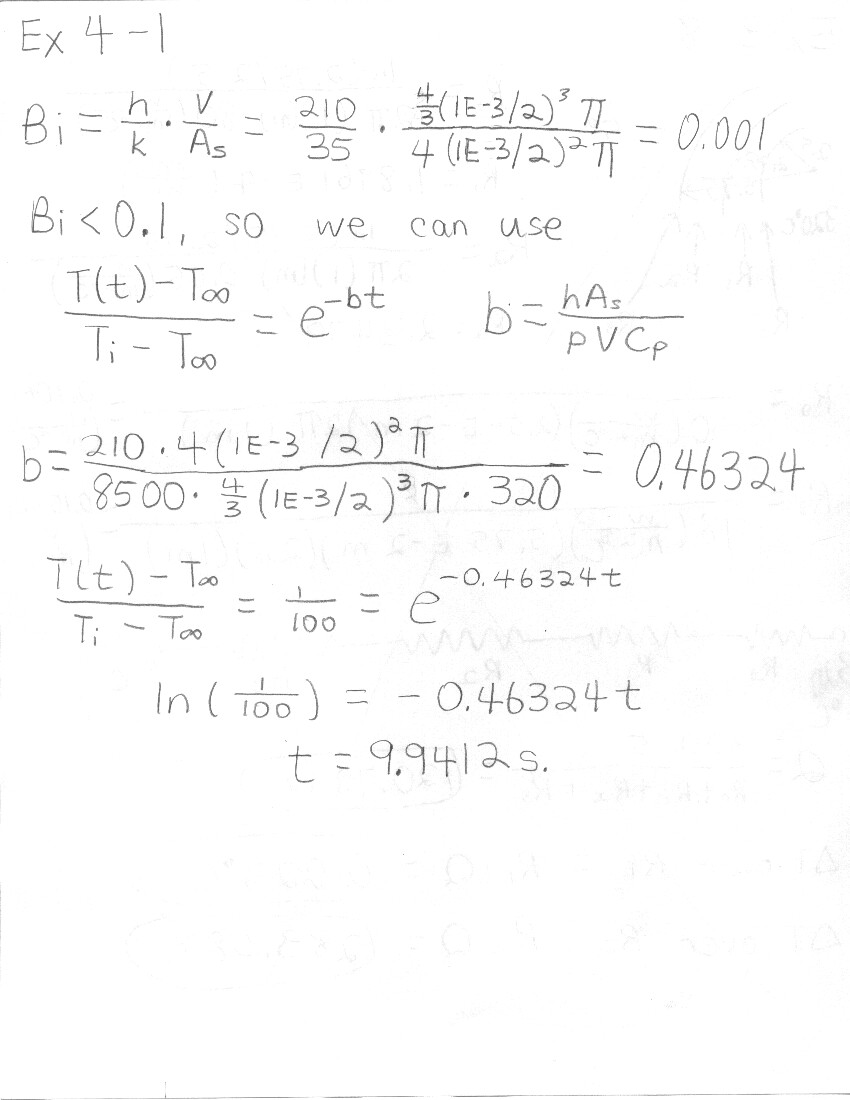 Ex 4-1
Bi = h/k · V/As = 210/35 · 4/3(1E-3/2)³π / 4(1E-3/2)²π = 0.001
Bi < 0.1, so we can use
T(t) - T∞ / Ti - T∞ = e^-bt   b = hAs / ρVCp
b = 210 · 4(1E-3/2)²π / 8500 · 4/3(1E-3/2)³π · 320 = 0.46324
T(t) - T∞ / Ti - T∞ = 1/100 = e^-0.46324t
ln(1/100) = -0.46324t
t = 9.9412 s.